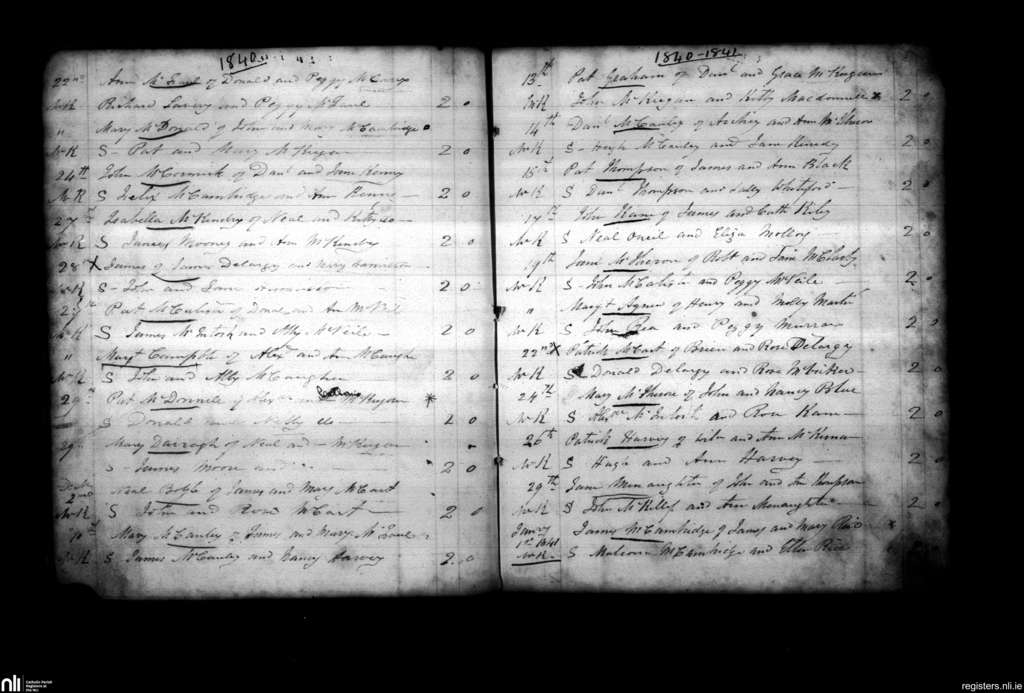 1840
22nd Ann Mc of Donald and Peggy McCarry
McK Richard Savery and Peggy McFaul 2 0
" Mary McDonald of John and Mary McCambridge
McK S - Pat and Mary McKeegan 2 0
24th John McCormick of Danl and Jane Kenny
McK S Felix McCambridge and Ann Kenny 2 0
27th Isabella McKendry of Neal and Kitty do
McK S James Mooney and Ann McKendry 2 0
28th X James of James Delargy and Mary Hamilton
McK S - John and Jane 2 0
Pat of and Ann McNeil
McK S James McIntosh and Alby McNeile - 2 0
" Margt Campble of Alexr and Ann McCaughan
McK S John and Alby McCaughan 2 0
29th Pat McDonnell of Alexr and McKeegan *
S Donald and Nelly do 2 0
29th Mary Darragh of Neal and McKeegan
S - James Moore and 2 0
2nd Neal Boyle of James and Mary McCart
McK S John and Rose McCart 2 0
Mary McCauley of James and Mary McFaul
McK S James McCauley and Nancy Harvey 2 0
1840-1841
13th Pat Graham of Danl and Grace McKeegan
McK John McKeegan and Kitty Macdonnell x 2 0
14th Danl McCauley of Archey and Ann McIlheron
McK S - Hugh McCauley and Jane Kennedy 2 0
15th Pat Thompson of James and Ann Black
McK S Danl Thompson and Sally Whiteford - 2 0
17th John Kane of James and Cath Kiley
McK S Neal Oneil and Eliza Molloy - 2 0
19th Jane of Robt and Jane McClarty
McK S - John McCalister and Peggy McNeile 2 0
" Margt Agnew of Henry and Molly Martin
McK S John Rea and Peggy Murray 2 0
22nd X Patrick McCart of Brien and Rose Delargy
McK S Donald Delargy and Rose 2 0
24th Mary of John and Nancy Blue
McK S Alexr McIntosh and Rose Kane 2 0
26th Patrick Harvey of John and Ann McKernan
McK S Hugh and Ann Harvey 2 0
29th Jane Menaughten of John and Ann Thompson
McK S John McKillop and Ann Menaughten 2 0
Janry 1st 1841 James McCambridge of James and Mary Rice
McK - S Malcom McCambridge and Ellen Rice
nli Catholic Parish Registers at the NLI
registers.nli.ie